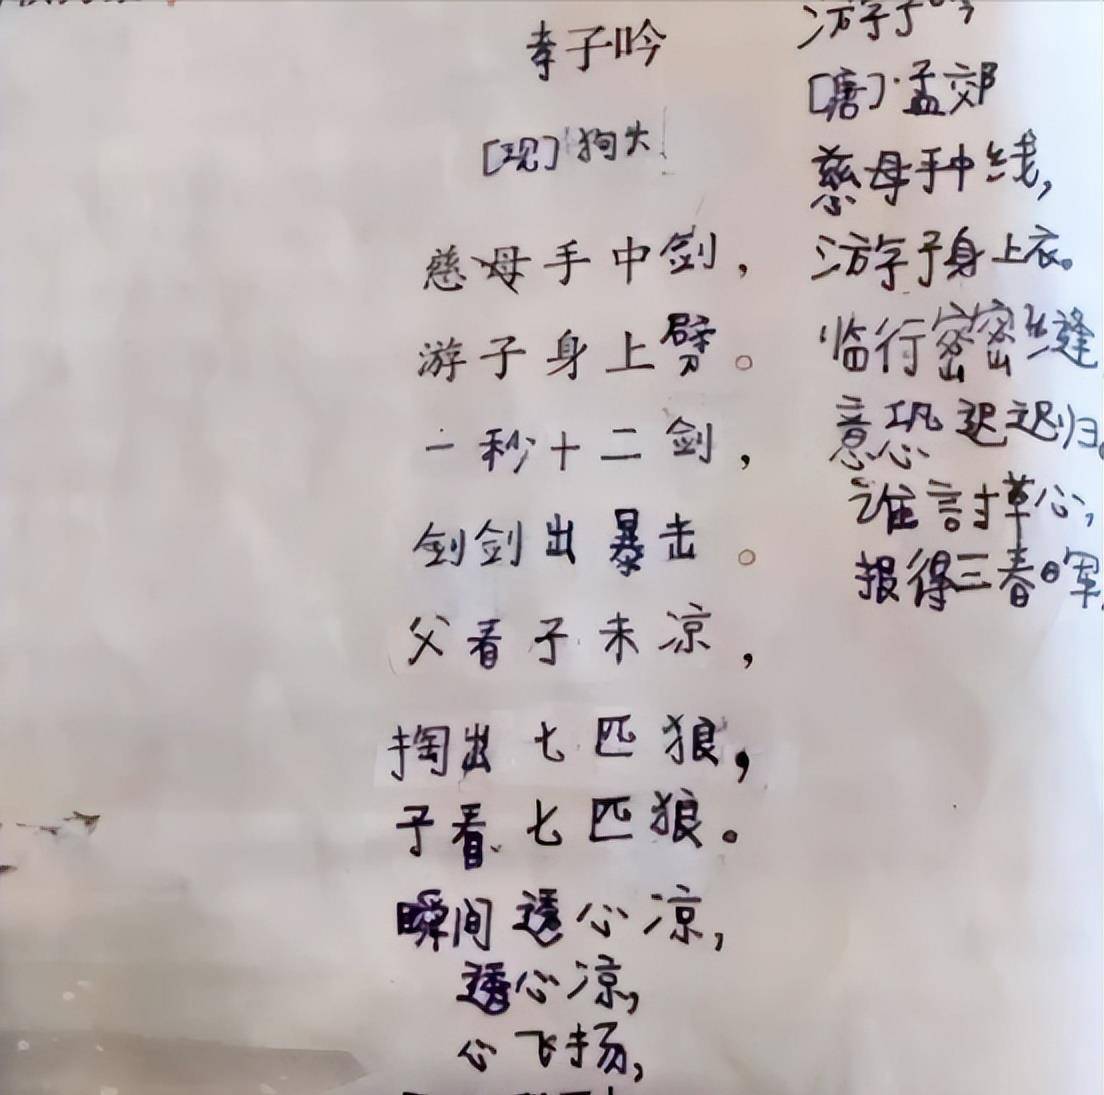 孝子吟
[现]狗头
慈母手中剑，
游子身上劈。
一秒十二剑，
剑剑出暴击。
父看子未凉，
掏出七匹狼，
子看七匹狼。
瞬间透心凉，
透心凉，
心飞扬，
游子吟
[唐]·孟郊
慈母手中线，
游子身上衣。
临行密密缝
意恐迟迟归。
谁言寸草心，
报得三春晖